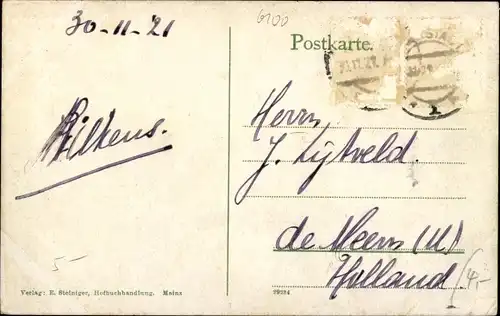 30-11-21
6100
Postkarte.
Wilkens.
Herrn
J. Lijtveld.
de Meern (U)
Holland.
5-
4,-
Verlag: E. Steiniger, Hofbuchhandlung. Mainz